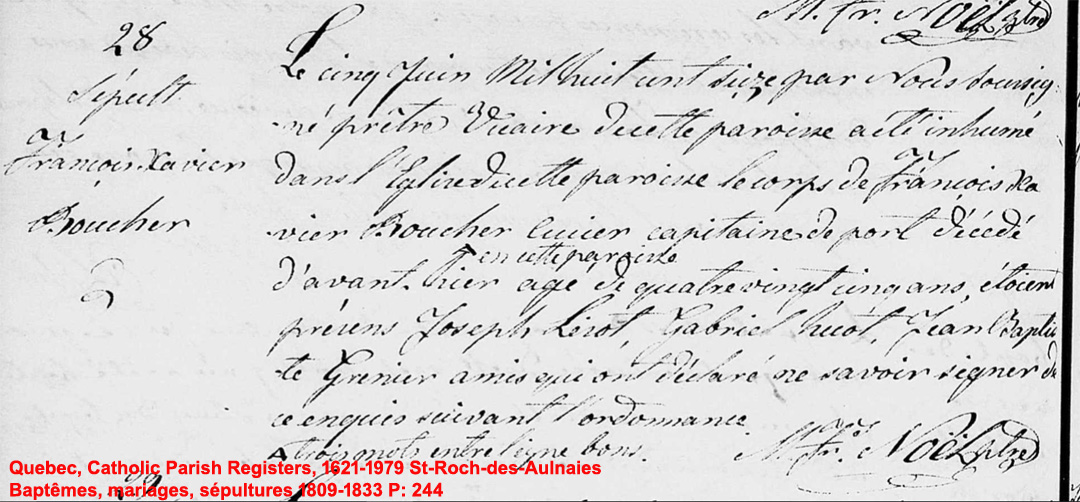 M. Fr. Noël Ptre
28
Sépult
François Xavier
Boucher
Le cinq Juin Mil huit cent sieze par Nous soussig-
-né prêtre Vicaire de cette paroisse a été inhumé
dans l'Eglise de cette paroisse le corps de François Xa
vier Boucher capitaine de port décédé
en cette paroisse
d'avant hier agé de quatre vingt cinq ans, étoient
présens Joseph Gabriel Jean Baptis
-te Grenier amis qui ont déclaré ne savoir signer de
ce enquis suivant l'ordonnance.
trois mots entre ligne bons.
M. Frs. Noël, ptre
Quebec, Catholic Parish Registers, 1621-1979 St-Roch-des-Aulnaies
Baptêmes, mariages, sépultures 1809-1833 P: 244